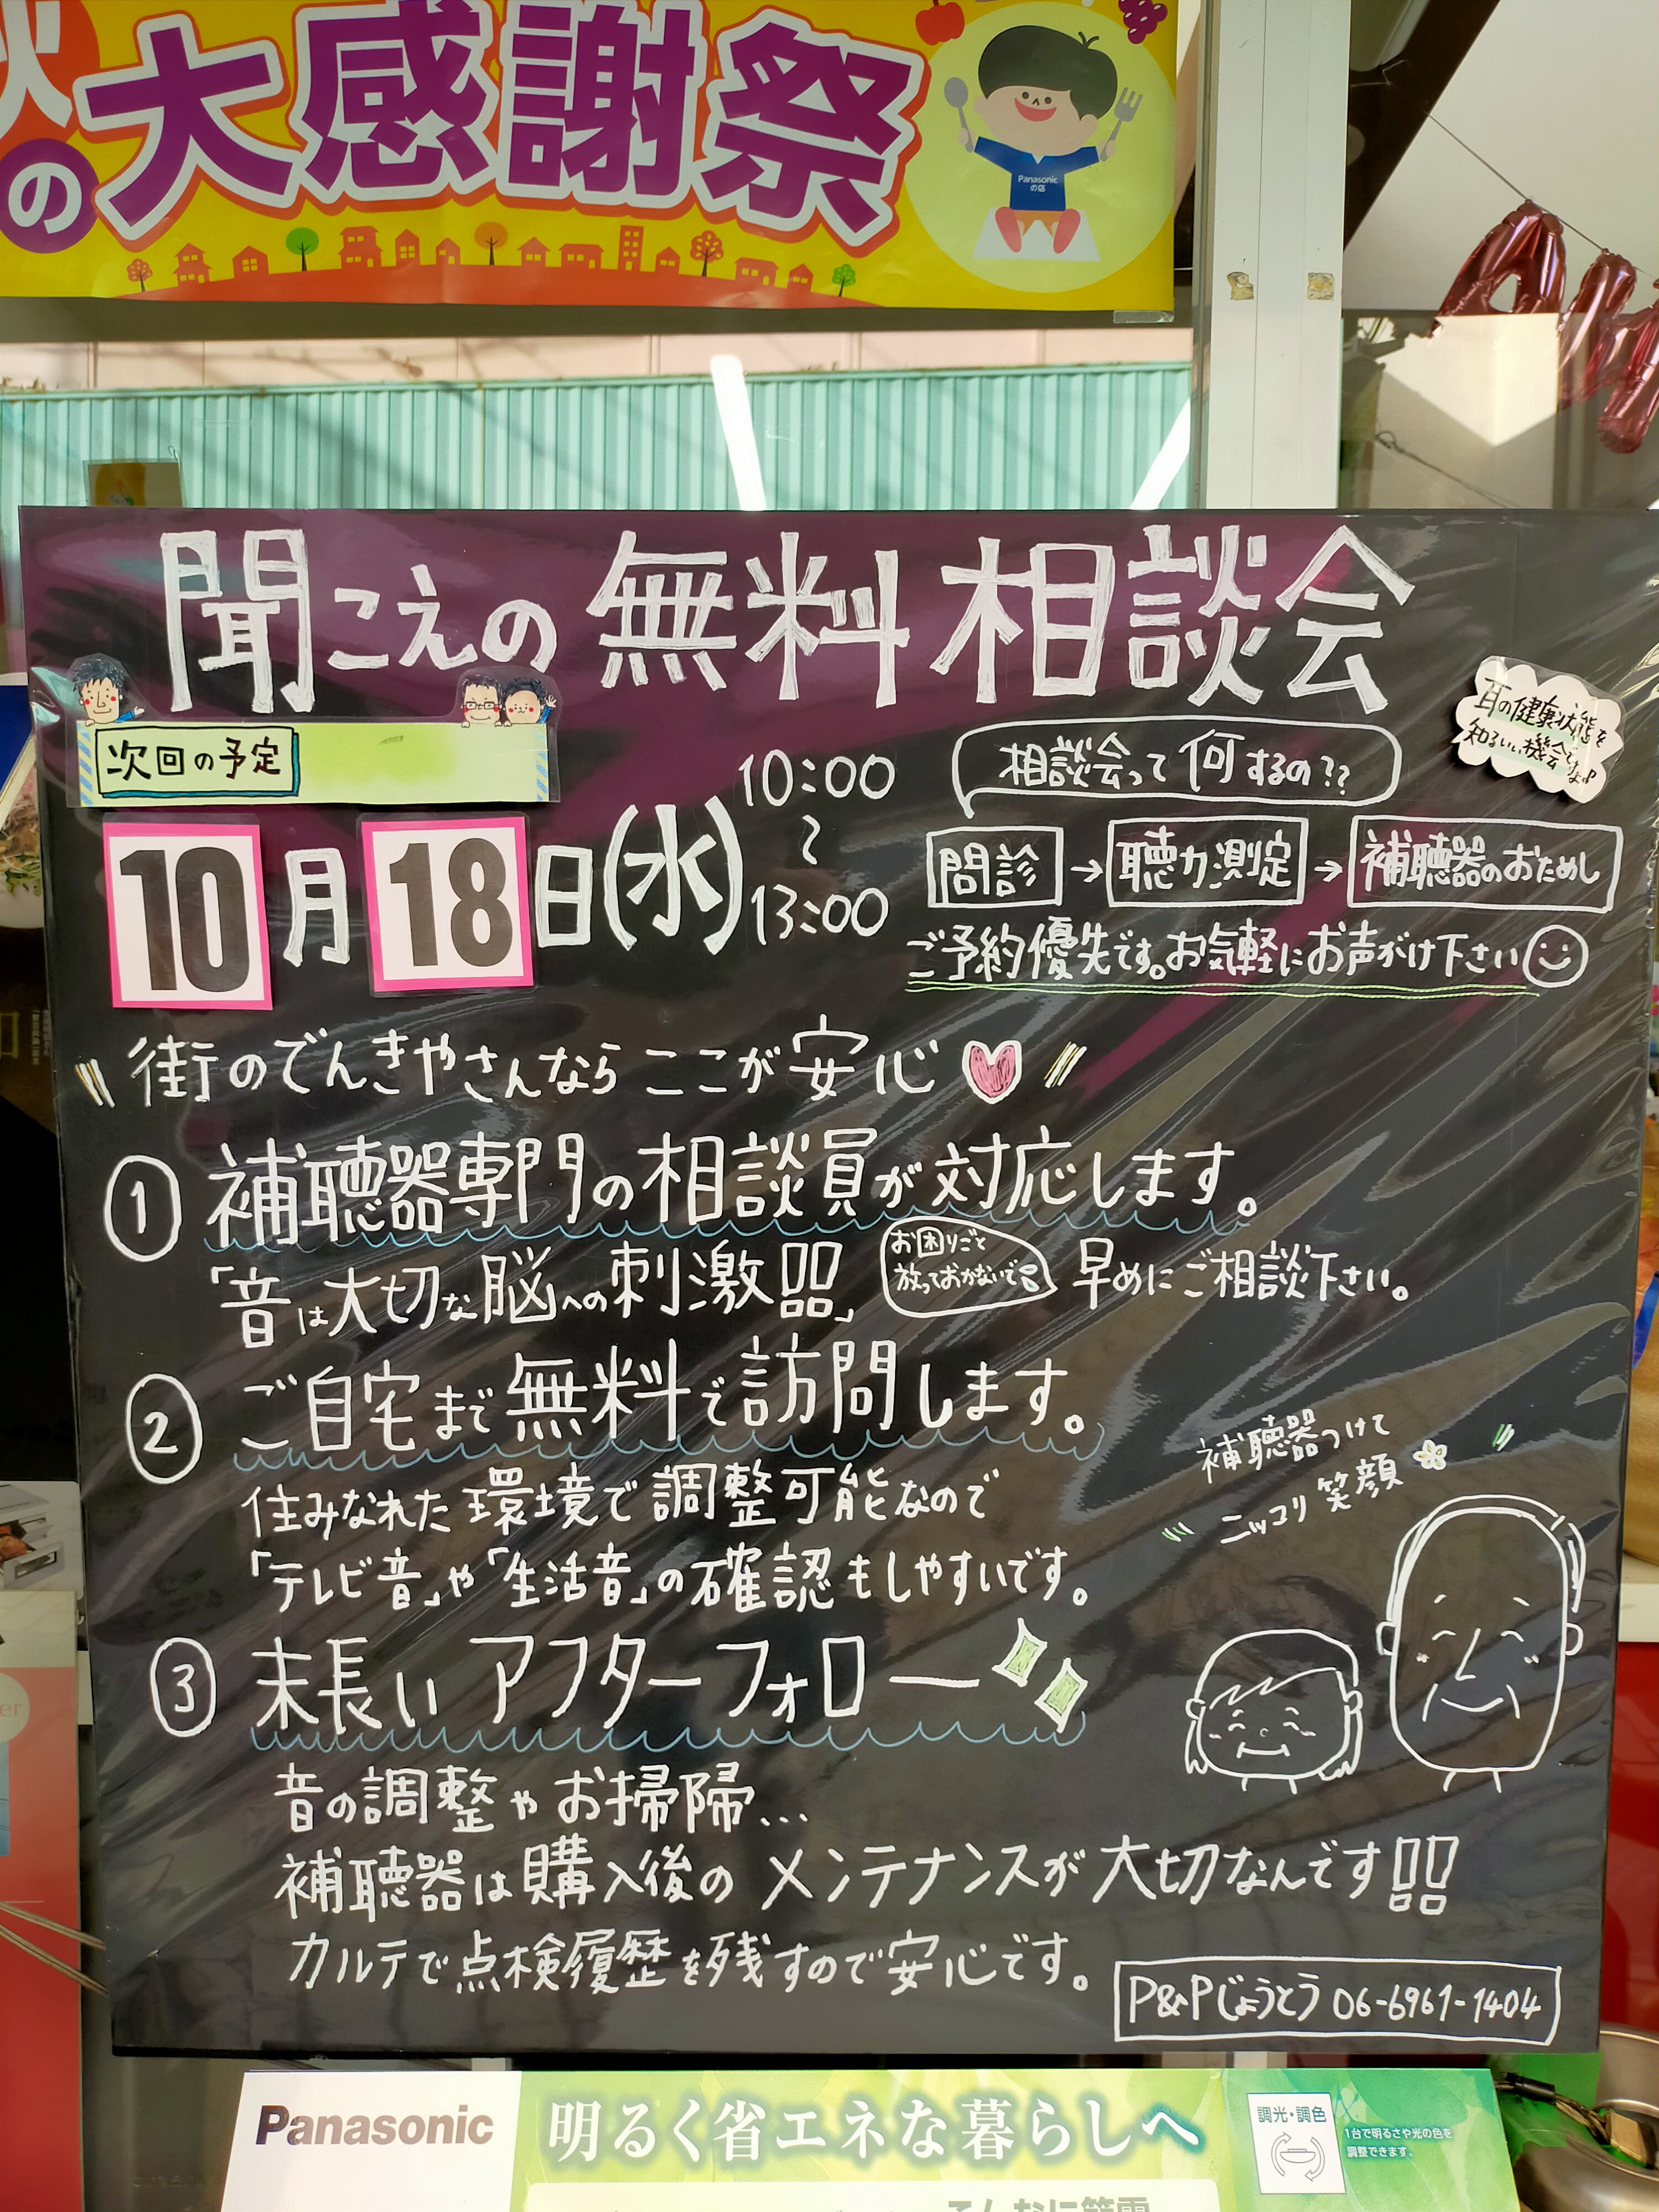 秋の大感謝祭
Panasonic
の店
聞こえの無料相談会
次回の予定
10月18日(水)
10:00
〜
13:00
相談会って何するの??
耳の健康状態を
知るいい機会ですよ♪
問診→聴力測定→補聴器のおためし
ご予約優先です。お気軽にお声がけ下さい
街のでんきやさんならここが安心
① 補聴器専門の相談員が対応します。
「音は大切な脳への刺激!!」
お困りごと
放っておかないで
早めにご相談下さい。
② ご自宅まで無料で訪問します。
住みなれた環境で調整可能なので
「テレビ音」や「生活音」の確認もしやすいです。
補聴器つけて
ニッコリ笑顔
③ 末長いアフターフォロー
音の調整やお掃除...
補聴器は購入後のメンテナンスが大切なんです!!
カルテで点検履歴を残すので安心です。
P&Pじょうとう 06-6961-1404
Panasonic
明るく省エネな暮らしへ
調光・調色
1台で明るさや光の色を
調整できます。